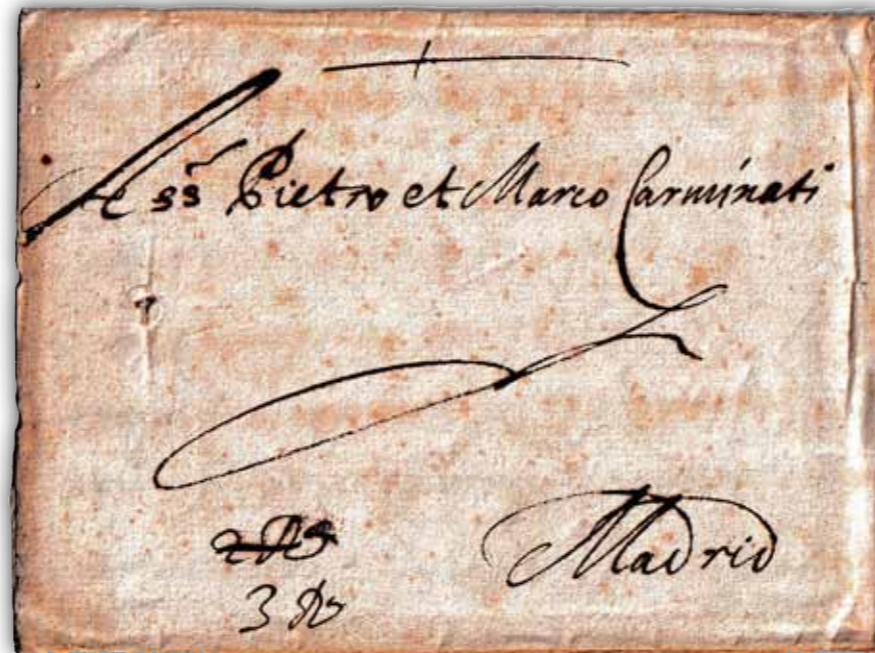 A ss.r Pietro et Marco Carminati
Madrid
2 Rs
3 Rs